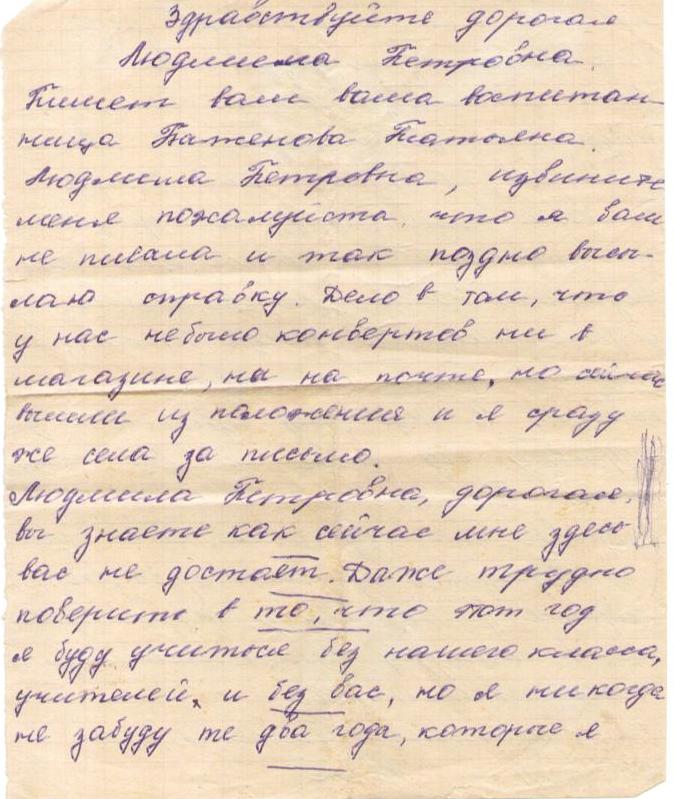 Здравствуйте дорогая
Людмила Петровна.
Пишет вам ваша воспитан-
ница Баженова Татьяна.
Людмила Петровна, извините
меня пожалуйста, что я вам
не писала и так поздно высы-
лаю справку. Дело в том, что
у нас небыло конвертов ни в
магазине, ни на почте, но сейчас
вышли из положения и я сразу
же села за письмо.
Людмила Петровна, дорогая,
вы знаете как сейчас мне здесь
вас не достаёт. Даже трудно
поверить в то, что этот год
я буду учиться без нашего класса,
учителей, и без вас, но я никогда
не забуду те два года, которые я